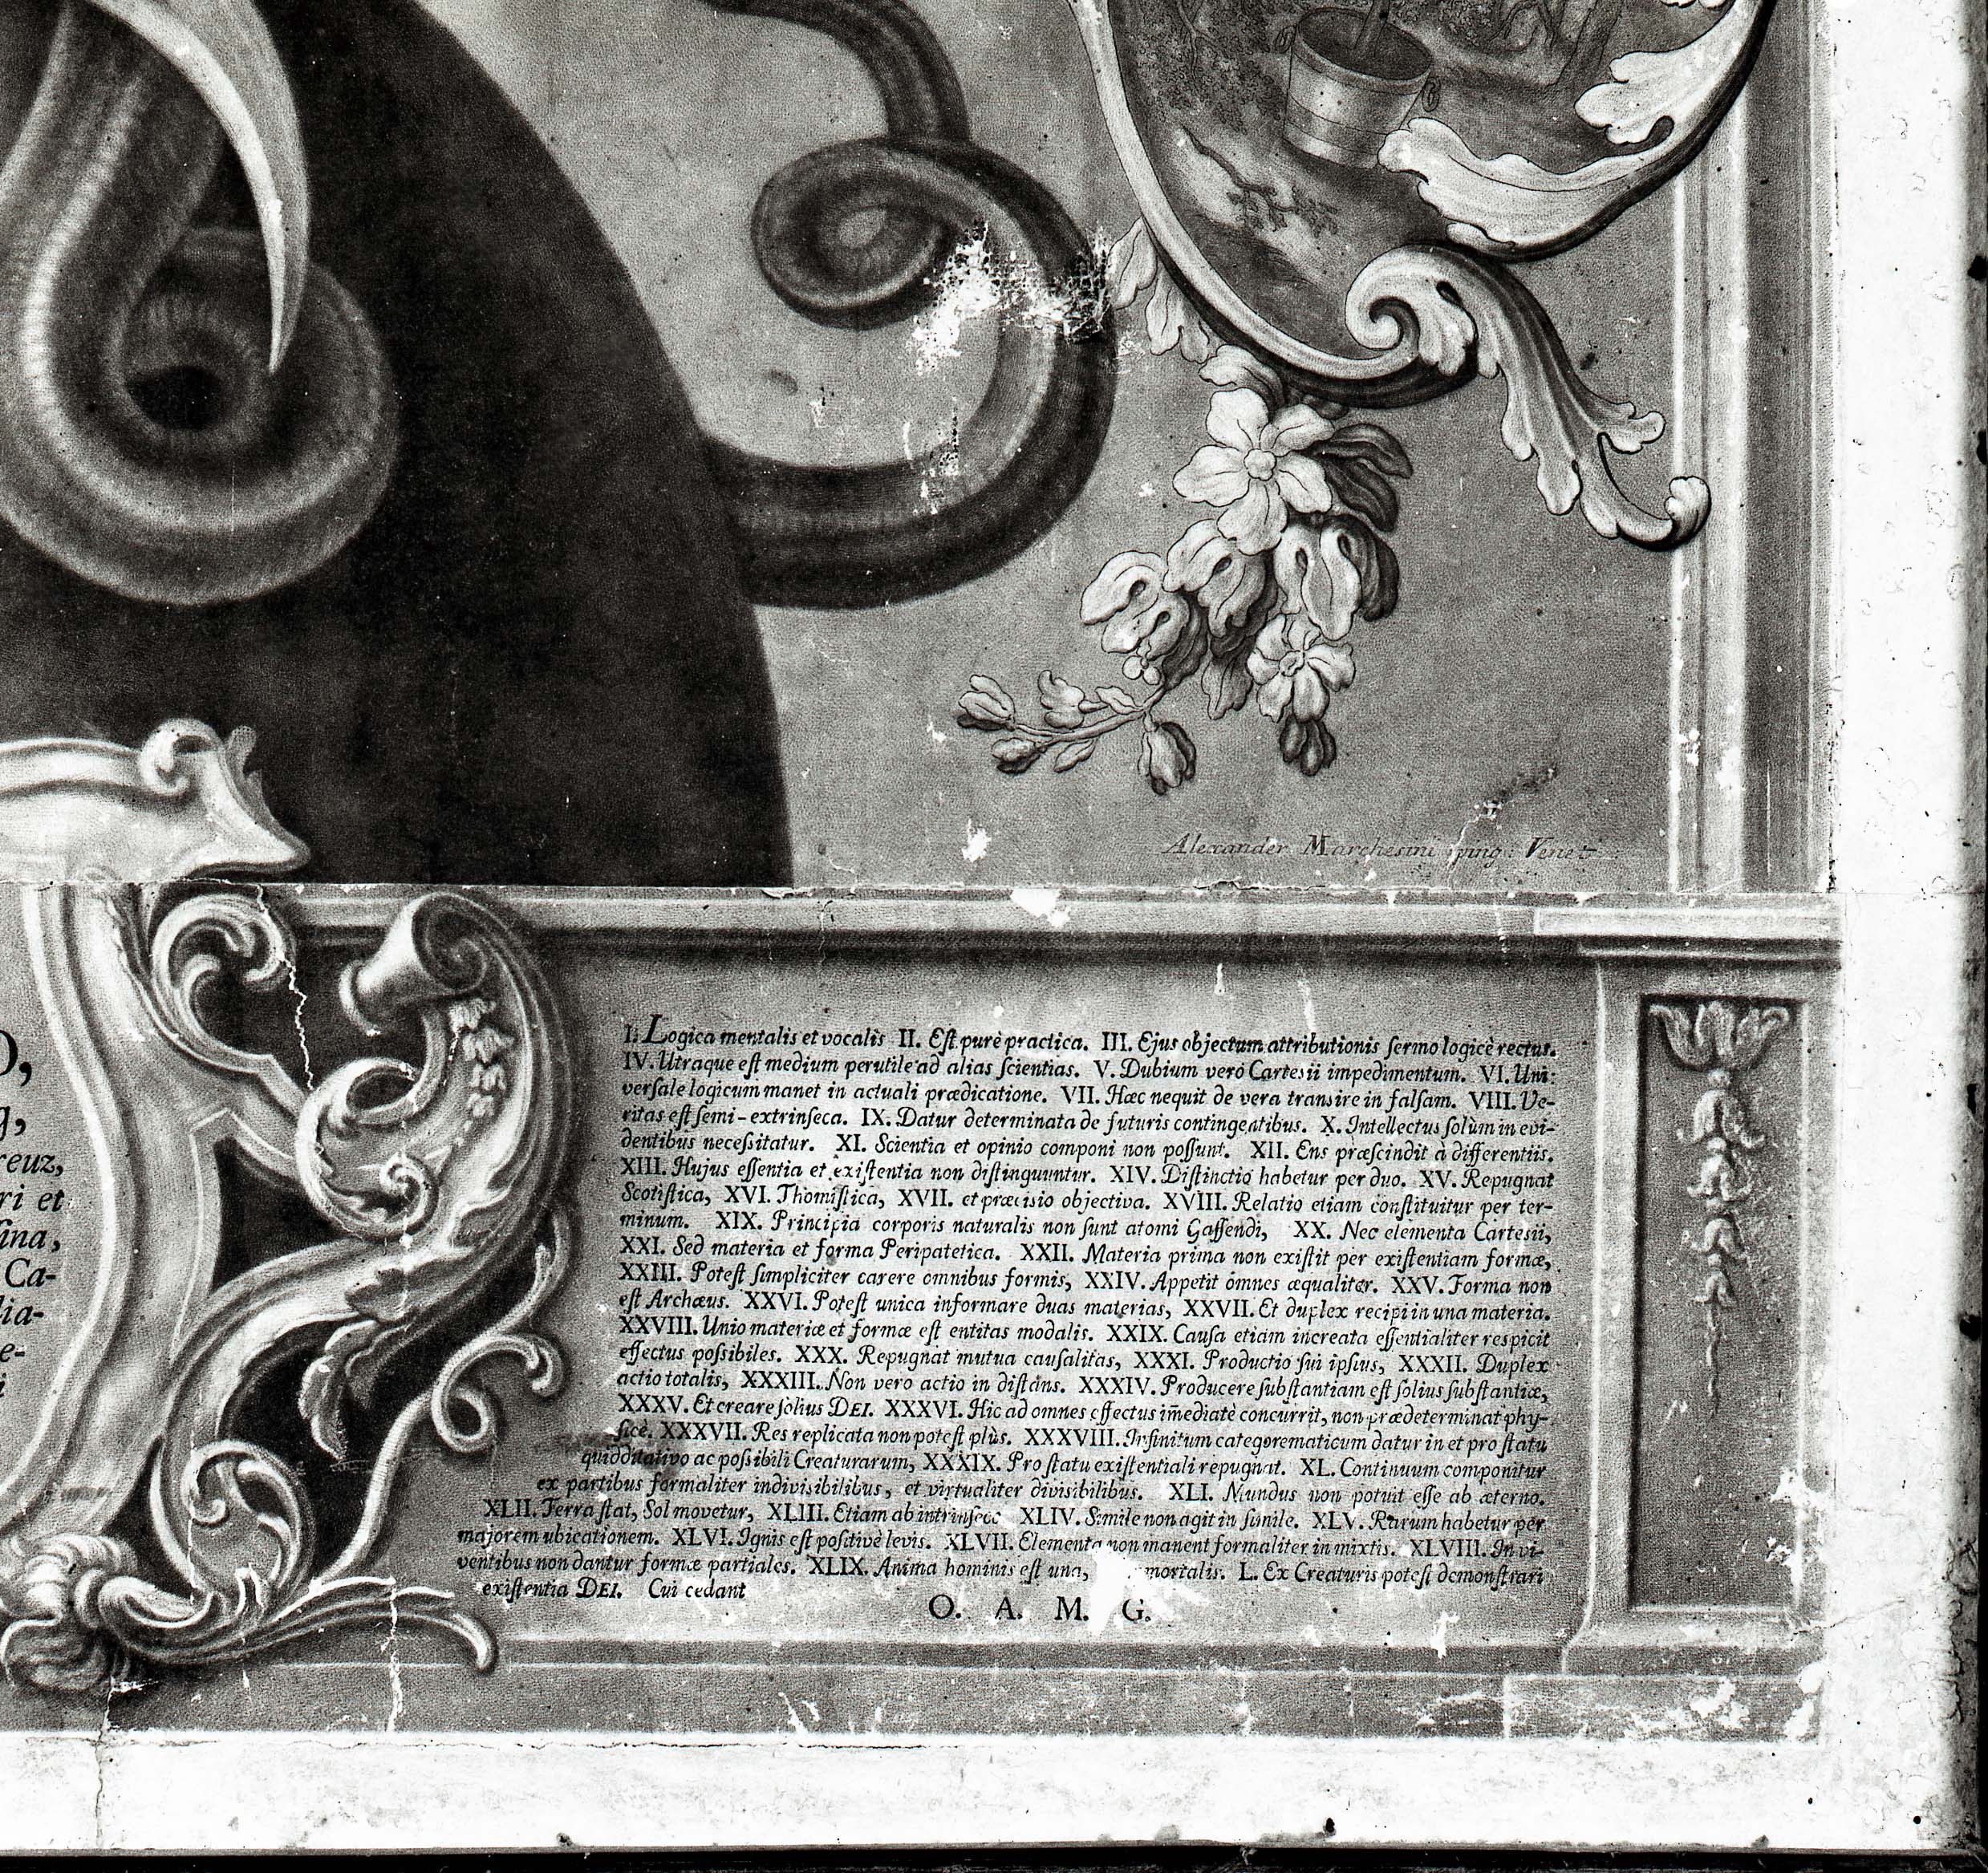 Alexander Marchesini ping: Venet
D,
g,
reuz,
ri et
ſina,
Ca-
lia-
e-
i
I. Logica mentalis et vocalis II. Eſt purè practica. III. Ejus objectum attributionis ſermo logicè rectus.
IV. Utraque eſt medium perutile ad alias ſcientias. V. Dubium verò Cartesii impedimentum. VI. Uni-
verſale logicum manet in actuali prædicatione. VII. Hæc nequit de vera transire in falſam. VIII. Ve-
ritas eſt ſemi-extrinſeca. IX. Datur determinata de futuris contingentibus. X. Intellectus ſolùm in evi-
dentibus neceſsitatur. XI. Scientia et opinio componi non poſſunt. XII. Ens præſcindit à differentiis.
XIII. Hujus eſſentia et exiſtentia non diſtinguuntur. XIV. Diſtinctio habetur per duo. XV. Repugnat
Scotiſtica, XVI. Thomiſtica, XVII. et præcisio objectiva. XVIII. Relatio etiam conſtituitur per ter-
minum. XIX. Principia corporis naturalis non ſunt atomi Gaſſendi, XX. Nec elementa Cartesii,
XXI. Sed materia et forma Peripatetica. XXII. Materia prima non exiſtit per exiſtentiam formæ,
XXIII. Poteſt ſimpliciter carere omnibus formis, XXIV. Appetit omnes æqualiter. XXV. Forma non
eſt Archæus. XXVI. Poteſt unica informare duas materias, XXVII. Et duplex recipi in una materia.
XXVIII. Unio materiæ et formæ eſt entitas modalis. XXIX. Cauſa etiam increata eſſentialiter respicit
effectus poſsibiles. XXX. Repugnat mutua cauſalitas, XXXI. Productio ſui ipſius, XXXII. Duplex
actio totalis, XXXIII. Non vero actio in diſtans. XXXIV. Producere ſubſtantiam eſt ſolius ſubſtantiæ,
XXXV. Et creare ſolius DEI. XXXVI. Hic ad omnes effectus im̄ediatè concurrit, non prædeterminat phy-
ſicè. XXXVII. Res replicata non poteſt plùs. XXXVIII. Infinitum categorematicum datur in et pro ſtatu
quidditativo ac poſsibili Creaturarum, XXXIX. Pro ſtatu exiſtentiali repugnat. XL. Continuum componitur
ex partibus formaliter indivisibilibus, et virtualiter divisibilibus. XLI. Mundus non potuit eſſe ab æterno.
XLII. Terra ſtat, Sol movetur, XLIII. Etiam ab intrinſeco XLIV. Simile non agit in ſimile. XLV. Rarum habetur per
majorem ubicationem. XLVI. Ignis eſt poſitivè levis. XLVII. Elementa non manent formaliter in mixtis. XLVIII. In vi-
ventibus non dantur formæ partiales. XLIX. Anima hominis eſt una, mortalis. L. Ex Creaturis poteſt demonſtrari
exiſtentia DEI. Cui cedant
O. A. M. G.